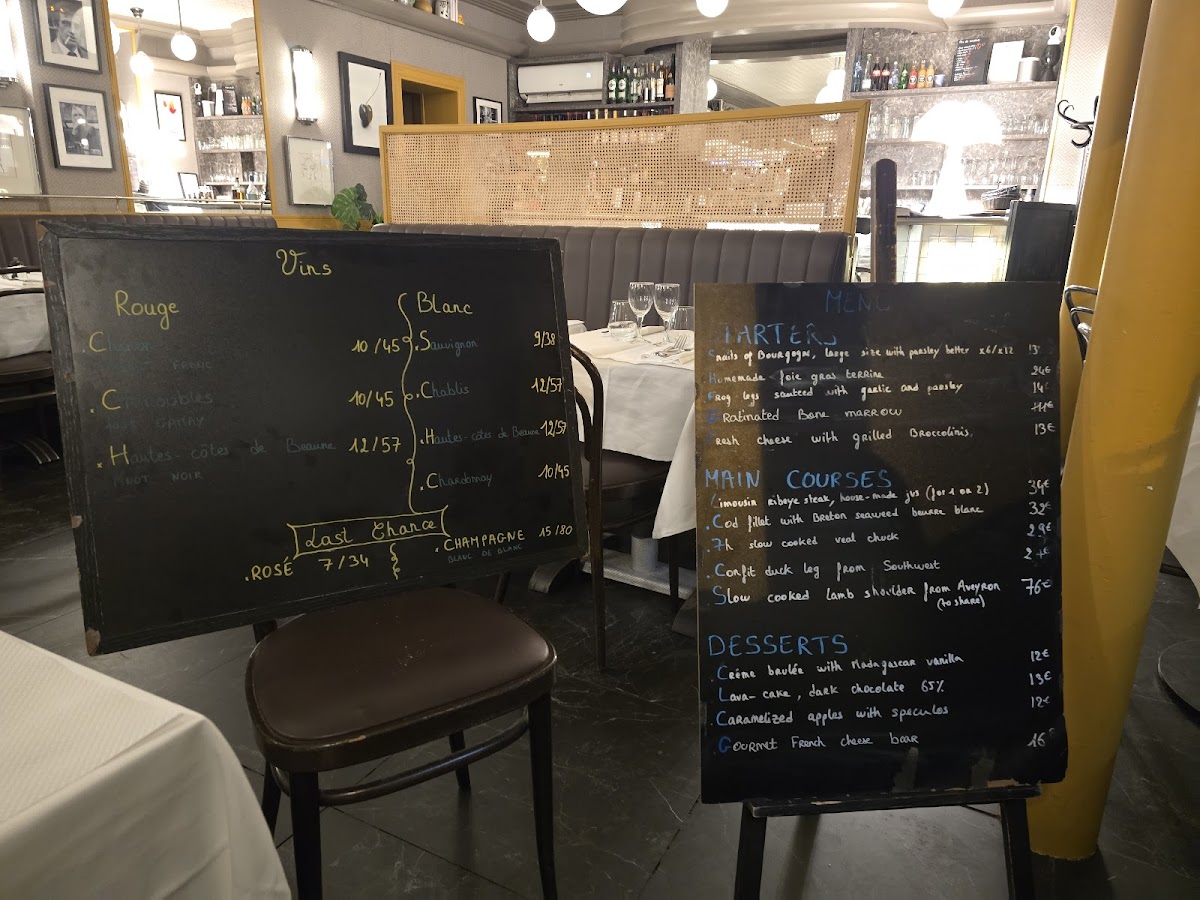 Vins
Rouge
Chinon 10/45
FRANC
Chiroubles 10/45
GAMAY
Hautes-côtes de Beaune 12/57
NOIR
Blanc
Sauvignon 9/38
Chablis 12/57
Hautes-côtes de Beaune 12/57
Chardonnay 10/45
Last Chance
ROSÉ 7/34
CHAMPAGNE 15/80
BLANC DE BLANC
MENU
TARTERS
Snails of Bourgogne, large size with parsley better x6/x12 13
Homemade foie gras terrine 24€
Frog legs sauteed with garlic and parsley 14€
Gratinated Bone marrow 11€
Fresh cheese with grilled Broccolinis 13€
MAIN COURSES
Limousin Ribeye steak, house-made jus (for 1 or 2) 34€
Cod fillet with Breton seaweed beurre blanc 32€
7h slow cooked veal chuck 29€
Confit duck leg from Southwest
Slow cooked lamb shoulder from Aveyron 76€
(to share)
DESSERTS
Crème brulée with Madagascar vanilla 12€
Lava-cake, dark chocolate 65% 13€
Caramelized apples with speculos 12€
Gourmet French cheese boar 16€